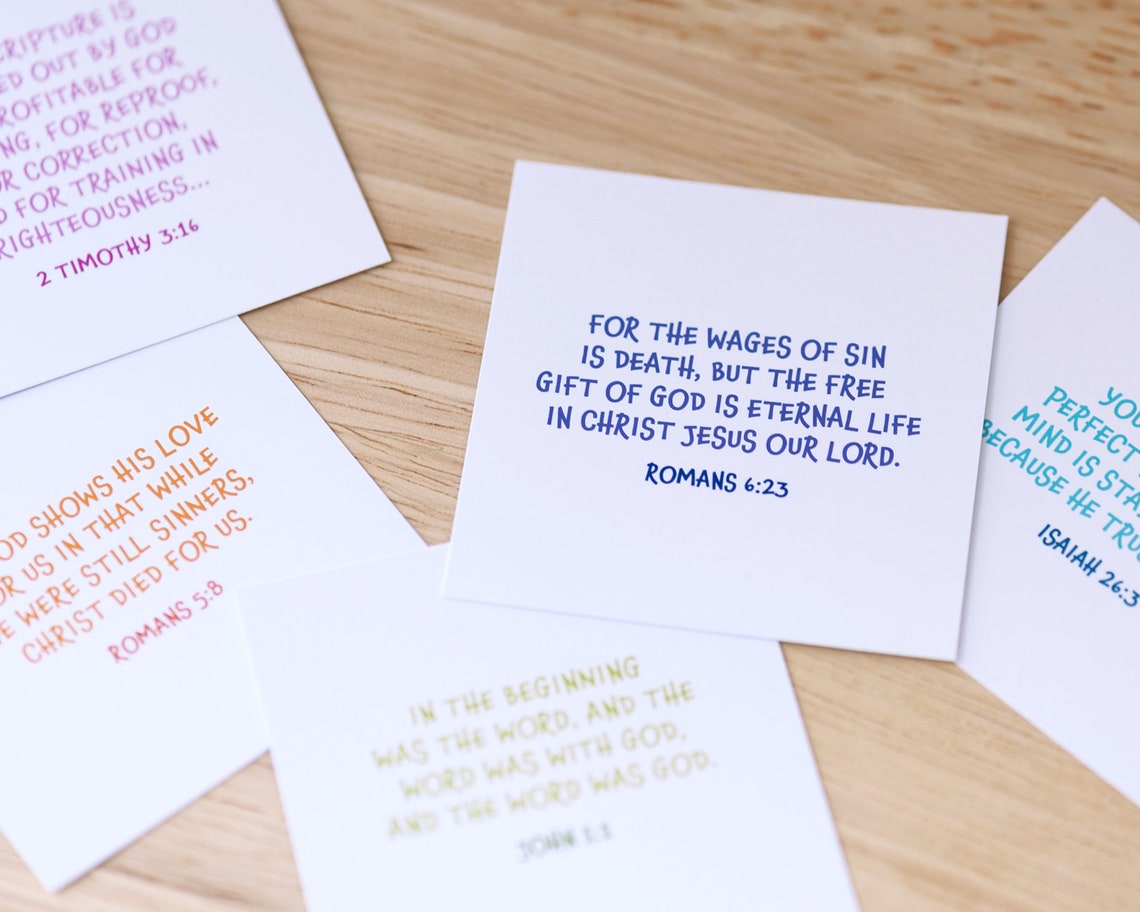 RIPTURE IS
ED OUT BY GOD
ROFITABLE FOR
NG, FOR REPROOF,
R CORRECTION,
D FOR TRAINING IN
RIGHTEOUSNESS...
2 TIMOTHY 3:16
FOR THE WAGES OF SIN
IS DEATH, BUT THE FREE
GIFT OF GOD IS ETERNAL LIFE
IN CHRIST JESUS OUR LORD.
ROMANS 6:23
YOU
PERFECT
MIND IS STA
BECAUSE HE TRU
ISAIAH 26:3
OD SHOWS HIS LOVE
OR US IN THAT WHILE
E WERE STILL SINNERS,
CHRIST DIED FOR US.
ROMANS 5:8
IN THE BEGINNING
WAS THE WORD, AND THE
WORD WAS WITH GOD,
AND THE WORD WAS GOD.
JOHN 1:1